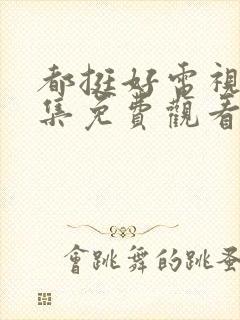 都挺好電視
集免費觀看
會跳舞的跳蚤